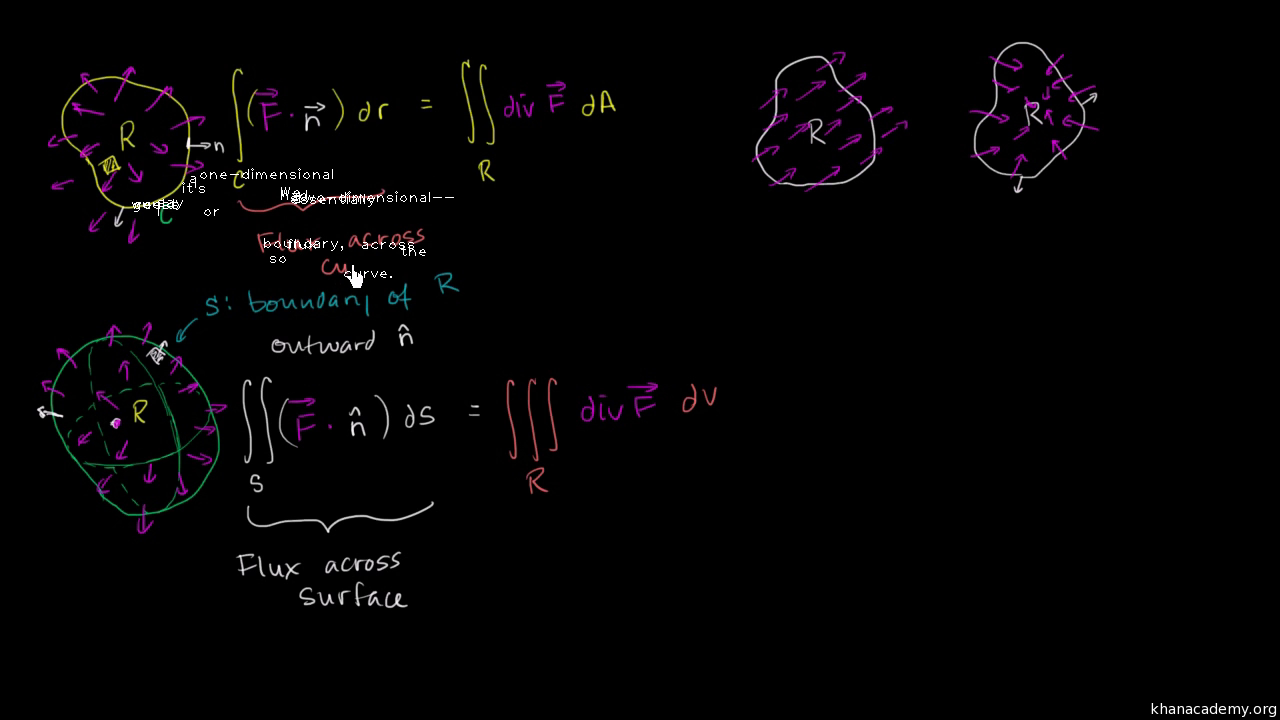 R
n
C
∫_C (F⃗ · n⃗) dr = ∬_R div F⃗ dA
R
R
a one-dimensional
it's
or
two-dimensional--
essentially
Flux across
boundary, across
the
so
curve.
S: boundary of R
outward n̂
R
∬_S (F⃗ · n̂) ds = ∭_R div F⃗ dv
Flux across
surface
khanacademy.org